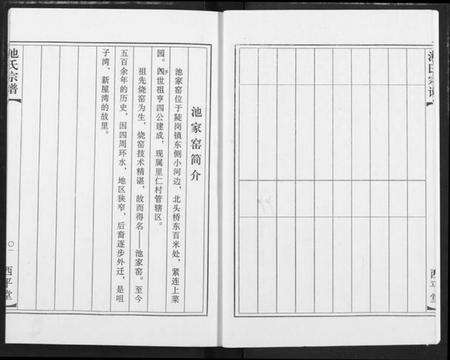 池家窑简介
池家窑位于陡岗镇东侧小河边，北头桥东百米处，紧连上菜
园。四世祖亨四公建成，现属里仁村管辖区。
祖先烧窑为生，烧窑技术精湛，故而得名——池家窑。至今
五百余年的历史，因四周环水，地区狭窄，后裔逐步外迁，是咀
子湾、新屋湾的故里。
池氏宗谱
〇一
西平堂
西平堂